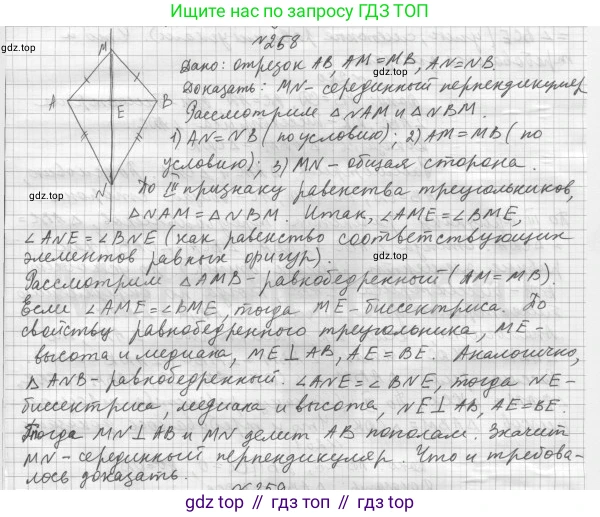 Ищите нас по запросу ГДЗ ТОП
gdz.top
gdz.top
gdz.top
N258
Дано: отрезок AB, AM=MB, AN=NB
Доказать: MN- серединный перпендикуляр
Рассмотрим △NAM и △NBM.
1) AN=NB (по условию); 2) AM=MB (по
условию); 3) MN- общая сторона.
По III признаку равенства треугольников,
△NAM=△NBM. Итак, ∠AME=∠BME,
∠ANE=∠BNE (как равенство соответствующих
элементов равных фигур).
Рассмотрим △AMB- равнобедренный (AM=MB).
Если ∠AME=∠BME, тогда ME- биссектриса. По
свойству равнобедренного треугольника, ME-
высота и медиана, ME⊥AB, AE=BE. Аналогично,
△ANB- равнобедренный. ∠ANE=∠BNE, тогда NE-
биссектриса, медиана и высота, NE⊥AB, AE=BE.
Тогда MN⊥AB и MN делит AB пополам. Значит
MN- серединный перпендикуляр. Что и требова-
лось доказать.
N259
M
A
E
B
N
gdz.top
gdz.top
gdz.top
gdz top // гдз топ // gdz top